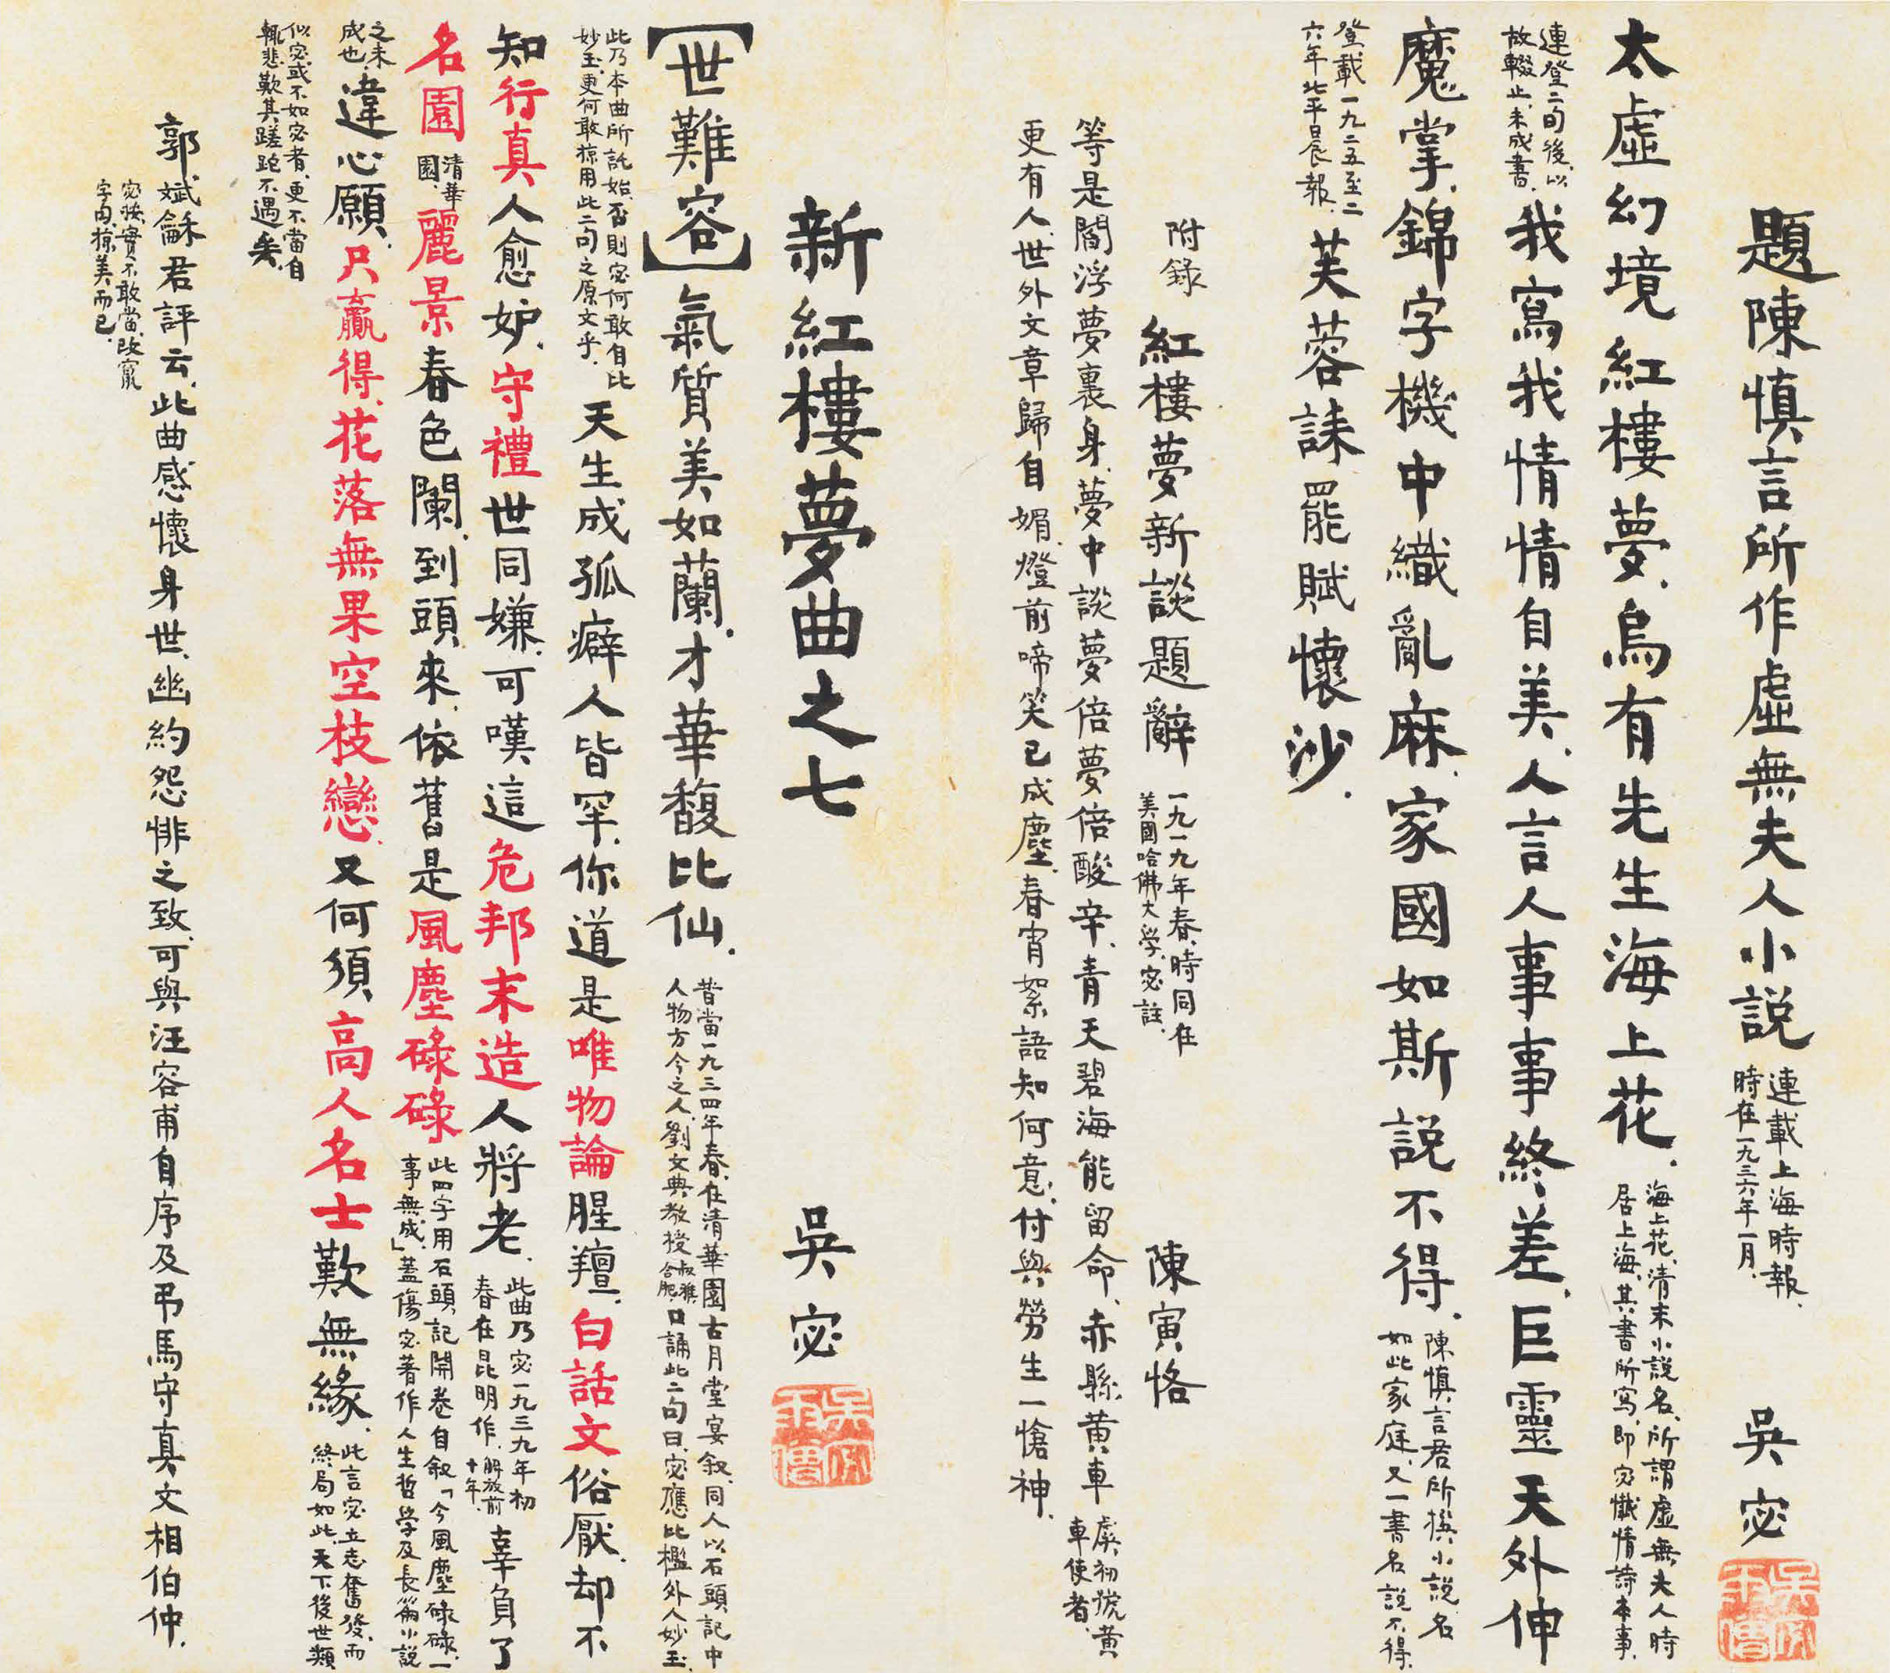 題陳慎言所作虛無夫人小説 連載上海時報、時在一九三六年一月、 吳宓
太虛幻境紅樓夢、烏有先生海上花、 海上花、清末小説名、所謂虛無夫人時居上海、其書所寫、即宓懺情詩本事、
連登二旬後、以故輟止、未成書、 我寫我情情自美、人言人事事終差、巨靈天外伸
魔掌、錦字機中織亂麻、家國如斯説不得、 陳慎言君所撰小説名如此家庭、又一書名説不得、
登載一九二五至二六年北平晨報、 芙蓉誄罷賦懷沙、
附錄 紅樓夢新談題辭 一九一九年春、時同在美國哈佛大學、宓註、 陳寅恪
等是閻浮夢裏身、夢中談夢倍夢倍酸辛、青天碧海能留命、赤縣黃車 虞初號黃車使者、
更有人、世外文章歸自媚、燈前啼笑已成塵、春宵絮語知何意、付與勞生一愴神、
新紅樓夢曲之七 吳宓
【世難容】氣質美如蘭、才華馥比仙、 昔當一九三四年春、在清華園古月堂宴叙、同人以石頭記中人物方今之人、劉文典教授叔雅、合肥、口誦此二句曰、宓應比檻外人妙玉、
此乃本曲所託始、否則宓何敢自比妙玉、更何敢掠用此二句之原文乎、 天生成孤癖人皆罕、你道是唯物論腥羶、白話文俗厭、却不
知行真人愈妒、守禮世同嫌、可嘆這危邦末造人將老、 此曲乃宓一九三九年初春在昆明作、解放前十年、 辜負了
名園 清華園、 麗景春色闌、到頭來、依舊是風塵碌碌 此四字用石頭記開卷自叙「今風塵碌碌、一事無成、」蓋傷宓著作人生哲學及長篇小説
之未成也、 違心願、只贏得、花落無果空枝戀、又何須、高人名士歎無緣、 此言宓立志奮發、而終局如此、天下後世類
似宓、或不如宓者、更不當自輒悲歎其蹉跎不遇矣、
郭斌龢君評云、此曲感懷身世、幽約怨悱之致、可與汪容甫自序及弔馬守真文相伯仲、
宓按、實不敢當、改竄字句、掠美而已、